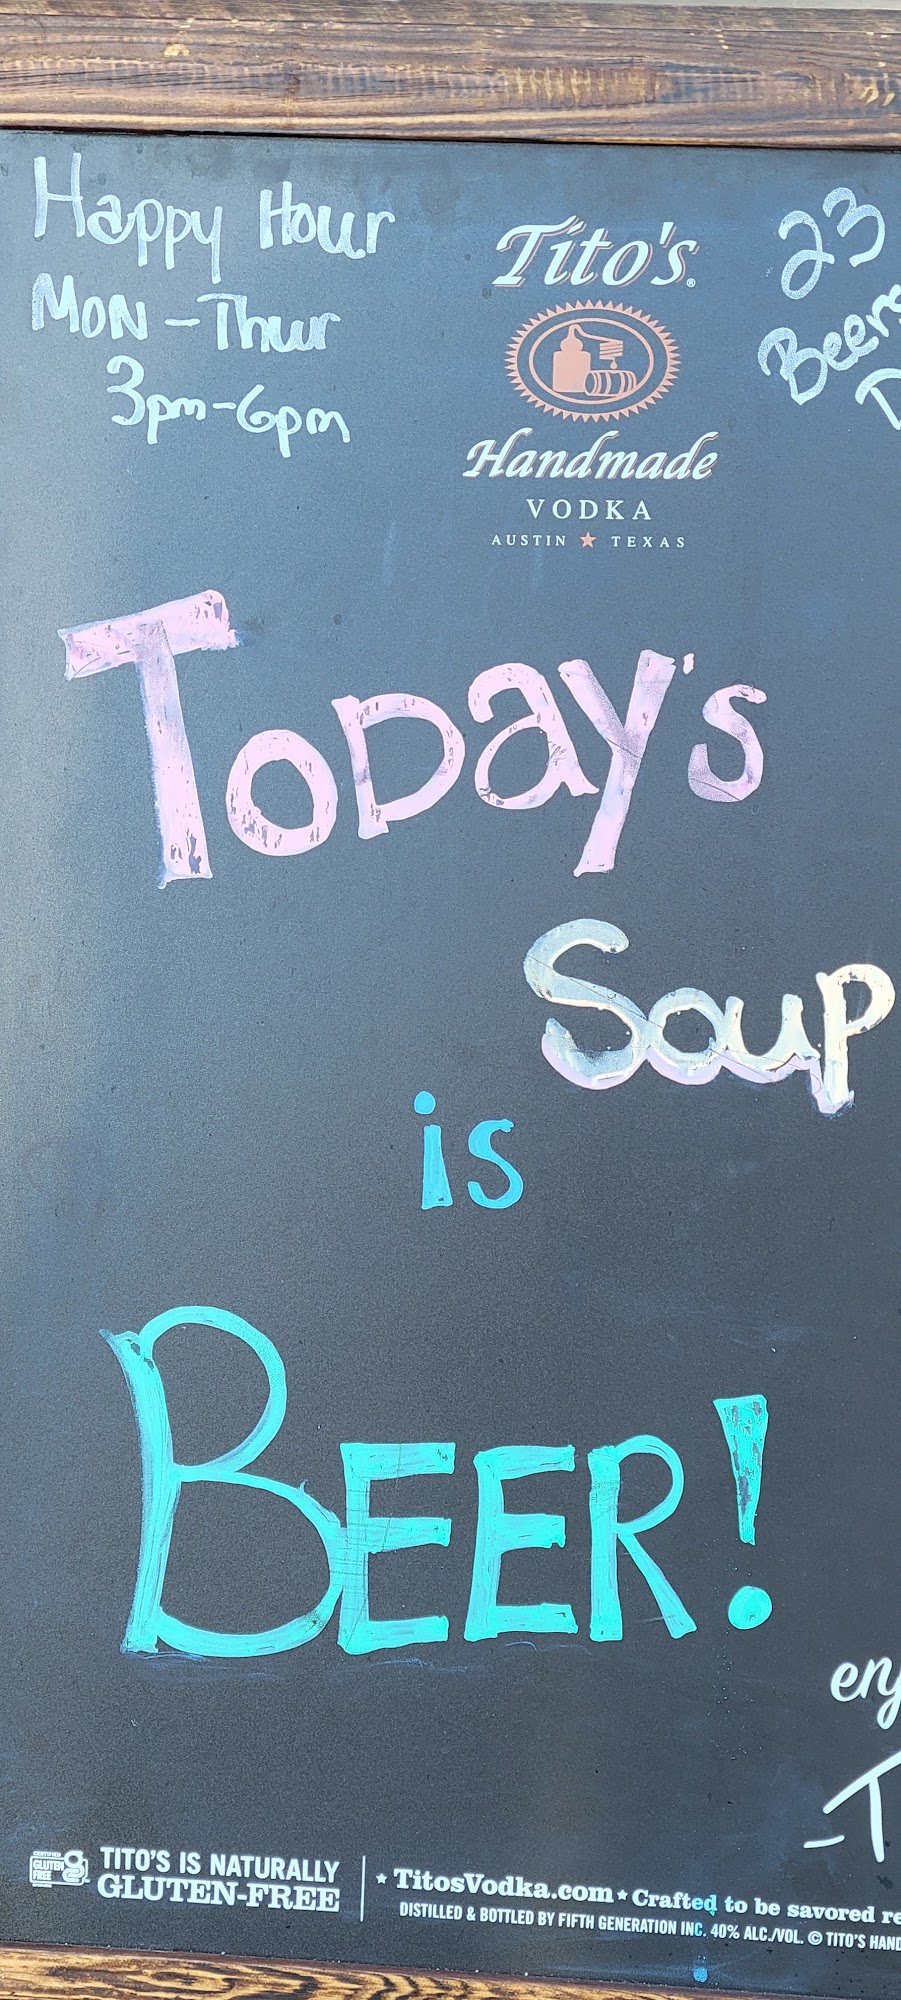 Happy Hour
MON - Thur
3pm-6pm
Tito's®
Handmade
VODKA
AUSTIN ★ TEXAS
23
Beers
Today's
Soup
is
BEER!
CERTIFIED
GLUTEN
FREE
TITO'S IS NATURALLY
GLUTEN-FREE
★ TitosVodka.com ★ Crafted to be savored
DISTILLED & BOTTLED BY FIFTH GENERATION INC. 40% ALC./VOL. © TITO'S